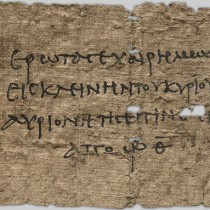 ερωταϲεχαιρημων
ειϲκλεινηντουκυριου
αυριονητιϲεϲτιν
απο ωρ θ